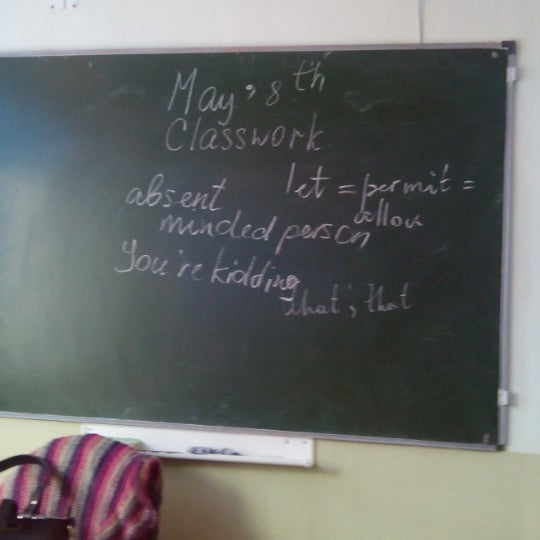 May, 8th
Classwork
absent
minded person
let = permit =
allow
You're kidding
that's that